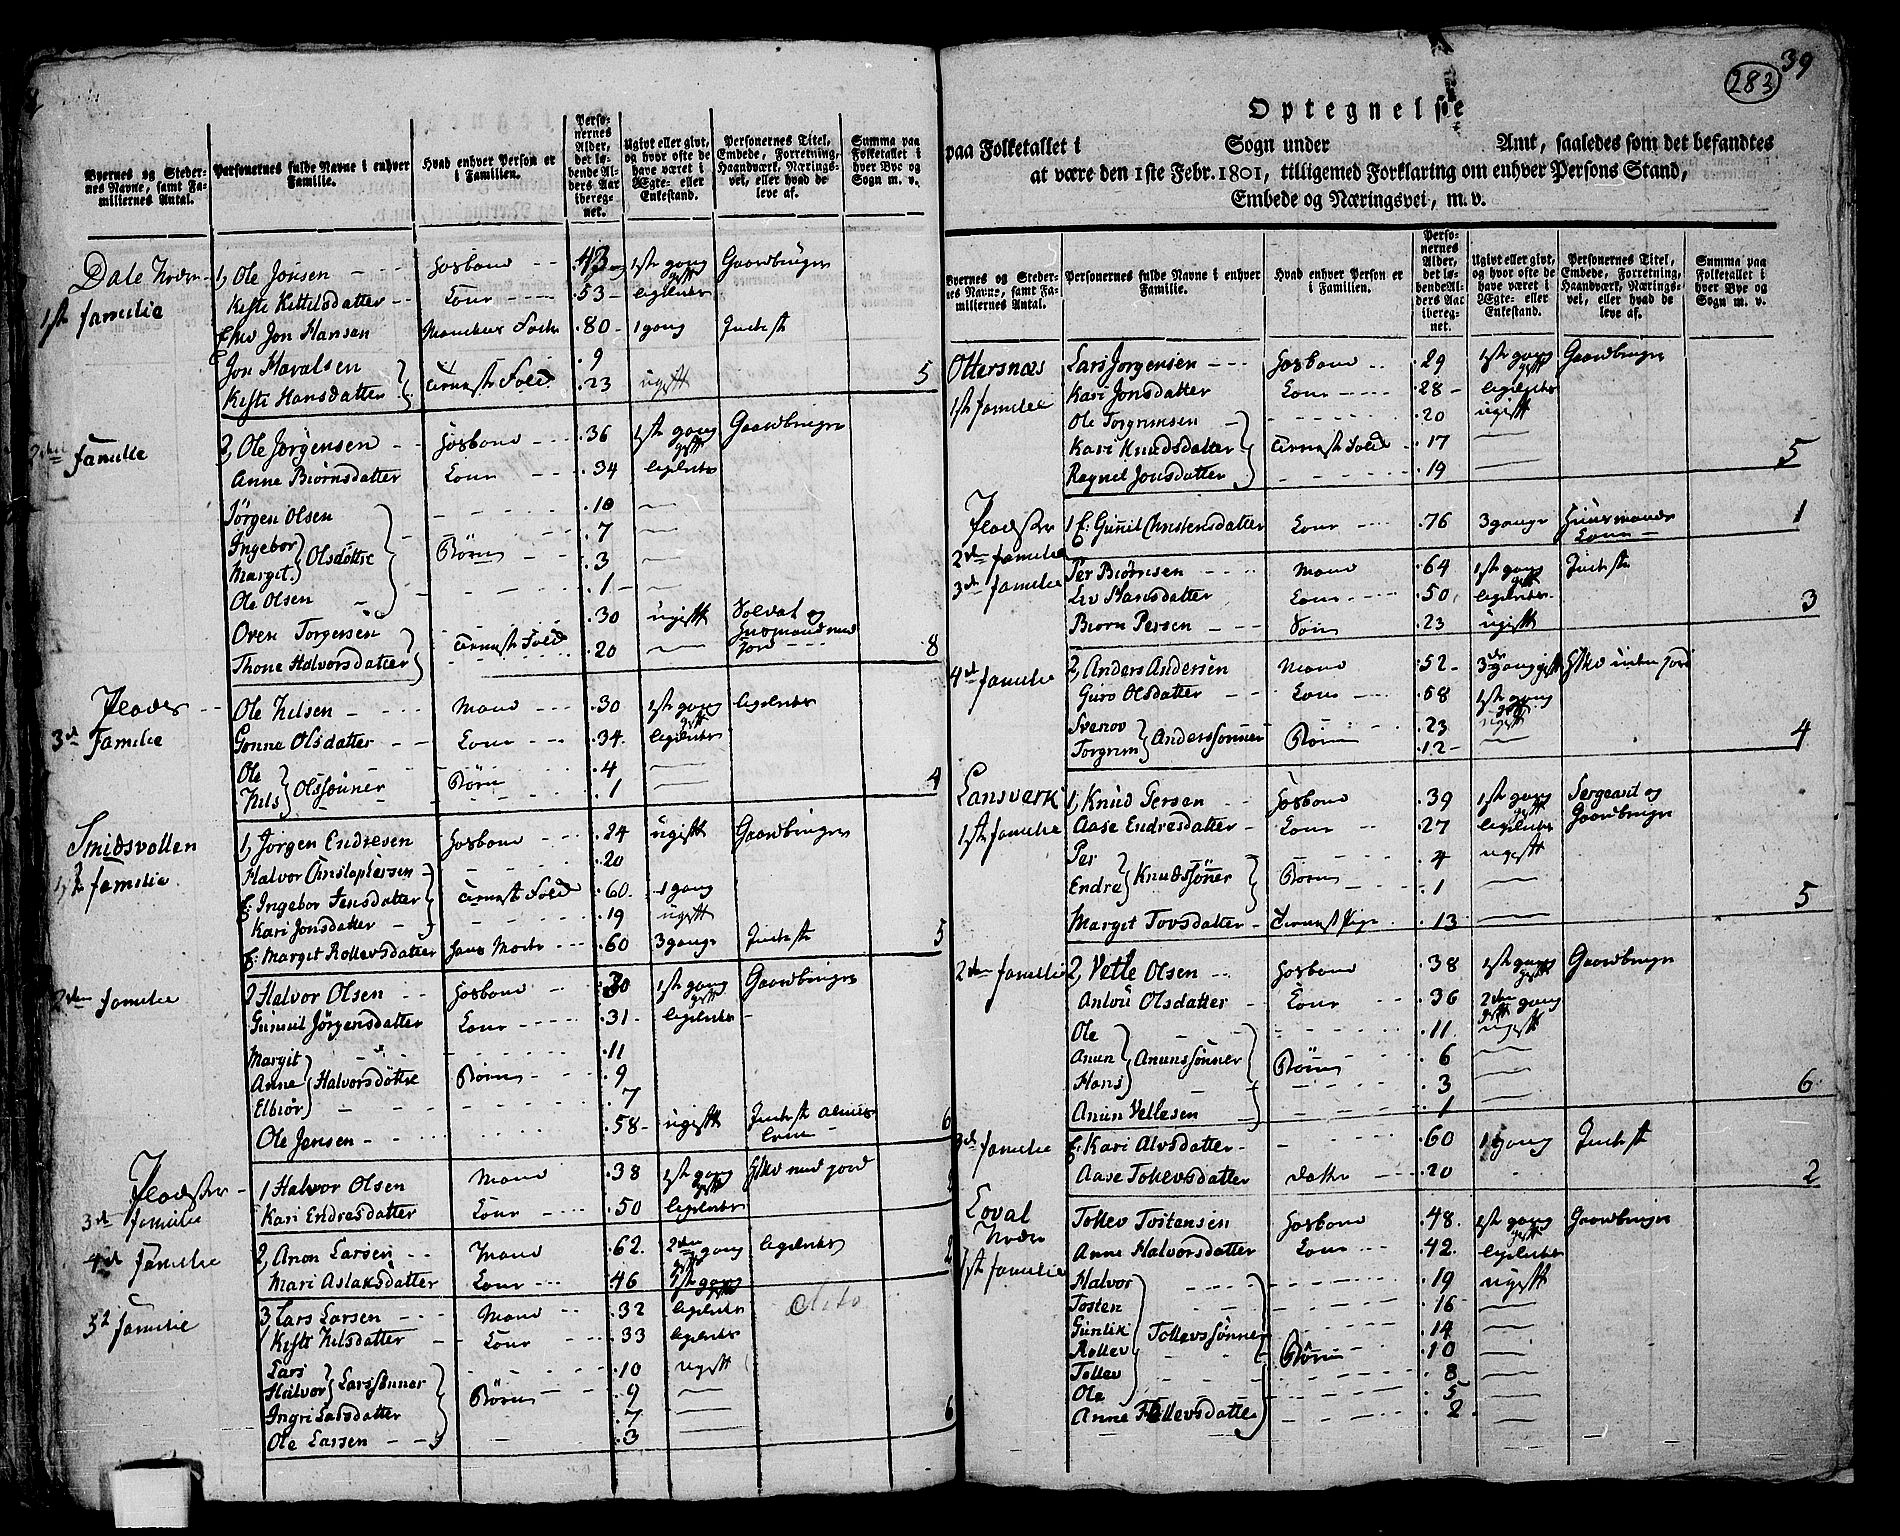 Byernes og Stedernes Navne, samt Familiernes Antal.
Personernes fulde Navne i enhver Familie.
Hvad enhver Person er i Familien.
Personernes Alder, det løbende Alders Aar iberegnet.
Ugivt eller givt, og hvor ofte de have været i Ægte- eller Enkestand.
Personernes Titel, Embede, Forretning, Haandværk, Næringsvei, eller hvad de leve af.
Summa paa Folketallet i hver Bye og Sogn m. v.
Dale
1, Ole Jonsen Hosbond 43 1ste gang gift Gaardbruger
1ste familie Kiste Kittilsdatter Kone 53 ligeledes
Jon Hansen 80 1 gang Inderst
Jon Haralsen 9
Kiste Hansdatter tienneste Folk 23 ugift 5
2den familie 2, Ole Jørgensen Hosbond 36 1ste gang gift Gaardbruger
Anne Biørnsdatter Kone 34 ligeledes
Jørgen Olsen 10
Ingebor 7
Margit Olsdøttre Børn 3
Ole Olsen 1
Oven Torgersen 30 ugift
Thone Halvorsdatter tienneste Folk 20 jord 8
Ole Nilsen Mand 30 1ste gang gift ligeledes
3de Familie Gonne Olsdatter Kone 34 ligeledes
Ole 4
Nils Olssønner Børn 1 4
Smidsvollen 1, Jørgen Endresen Hosbond 24 ugift Gaardbruger
1ste familie Halvor Christophersen 20
E: Ingebor Jensdatter tienneste Folk 60 1 gang
Kari Jonsdatter 19 ugift
E: Margit Rollevsdatter hans Moder 60 3 gange Inderst 5
2den familie 2 Halvor Olsen Hosbond 30 1ste gang gift Gaardbruger
Gunnil Jørgensdatter Kone 31 ligeledes
Margit 11
Anne Halvorsdøttre Børn 9
Elbiør 7
Ole Jensen 58 ugift Inderst 6
Pladser 1 Halvor Olsen Mand 38 1ste gang gift med jord
3de familie Kari Endresdatter Kone 50 ligeledes
4de Familie 2, Anon Larsen Mand 62 2den gang gift ligeledes
Mari Aslaksdatter Kone 46 1ste gang 2
5te familie 3 Lars Larsen Mand 32 ligeledes dito
Kiste Nilsdatter Kone 33 ligeledes
Lars 10 ugift
Halvor Larssønner Børn 9
Ingri Larsdatter 7
Ole Larsen 3 6
39
283
Optegnelse
paa Folketallet i Sogn under Amt, saaledes som det befandtes
at være den 1ste Febr. 1801, tilligemed Forklaring om enhver Persons Stand,
Embede og Næringsvei, m. v.
Byernes og Stedernes Navne, samt Familiernes Antal.
Personernes fulde Navne i enhver Familie.
Hvad enhver Person er i Familien.
Personernes Alder, det løbende Alders Aar iberegnet.
Ugivt eller givt, og hvor ofte de have været i Ægte- eller Enkestand.
Personernes Titel, Embede, Forretning, Haandværk, Næringsvei, eller hvad de leve af.
Summa paa Folketallet i hver Bye og Sogn m. v.
Ottersnæs Lars Jørgensen Hosbond 29 1ste gang gift Gaardbruger
1ste familie Kari Jonsdatter Kone 28 ligeledes
Ole Torgrimsen 20 ugift
Kari Knudsdatter tienneste Folk 17
Regnil Jonsdatter 19 5
Pladser 1 E: Gunil Christensdatter Kone 76 3 gange Huusmands Kone 1
2den familie
3de familie Per Biørnsen Mand 64 1ste gang gift Inderst
Liv Hansdatter Kone 50 ligeledes
Biørn Persen Søn 23 ugift 3
4de familie 2, Anders Andersen Mand 52 3de gang gift uden jord
Guro Olsdatter Kone 58 1ste gang gift
Svenov 23 ugift
Torgrim Anderssønner Børn 12 4
Lansverk 1, Knud Persen Hosbond 39 1ste gang gift Sergeant og Gaardbruger
1ste familie Aase Endresdatter Kone 27 ligeledes
Per 4 ugift
Endre Knudssønner Børn 1
Margit Tovsdatter tienneste Pige 13 5
2den familie 2, Vetle Olsen Hosbond 38 1ste gang gift Gaardbruger
Anlou Olsdatter Kone 36 2den gang gift
Ole 11 ugift
Anun Anunssønner Børn 6
Hans 3
Anun Vetlesen 1 6
3de familie E: Kari Alvsdatter 60 1 gang Inderst
Aase Tollevsdatter datter 20 2
Loval Tollev Tostensen Hosbond 48 1ste gang gift Gaardbruger
Anne Halvorsdatter Kone 42 ligeledes
1ste familie Halvor 19 ugift
Tosten 16
Gunlik Tollevssønner 14
Rollev Børn 10
Tollev 8
Ole 5
Anne Tollevsdatter 2